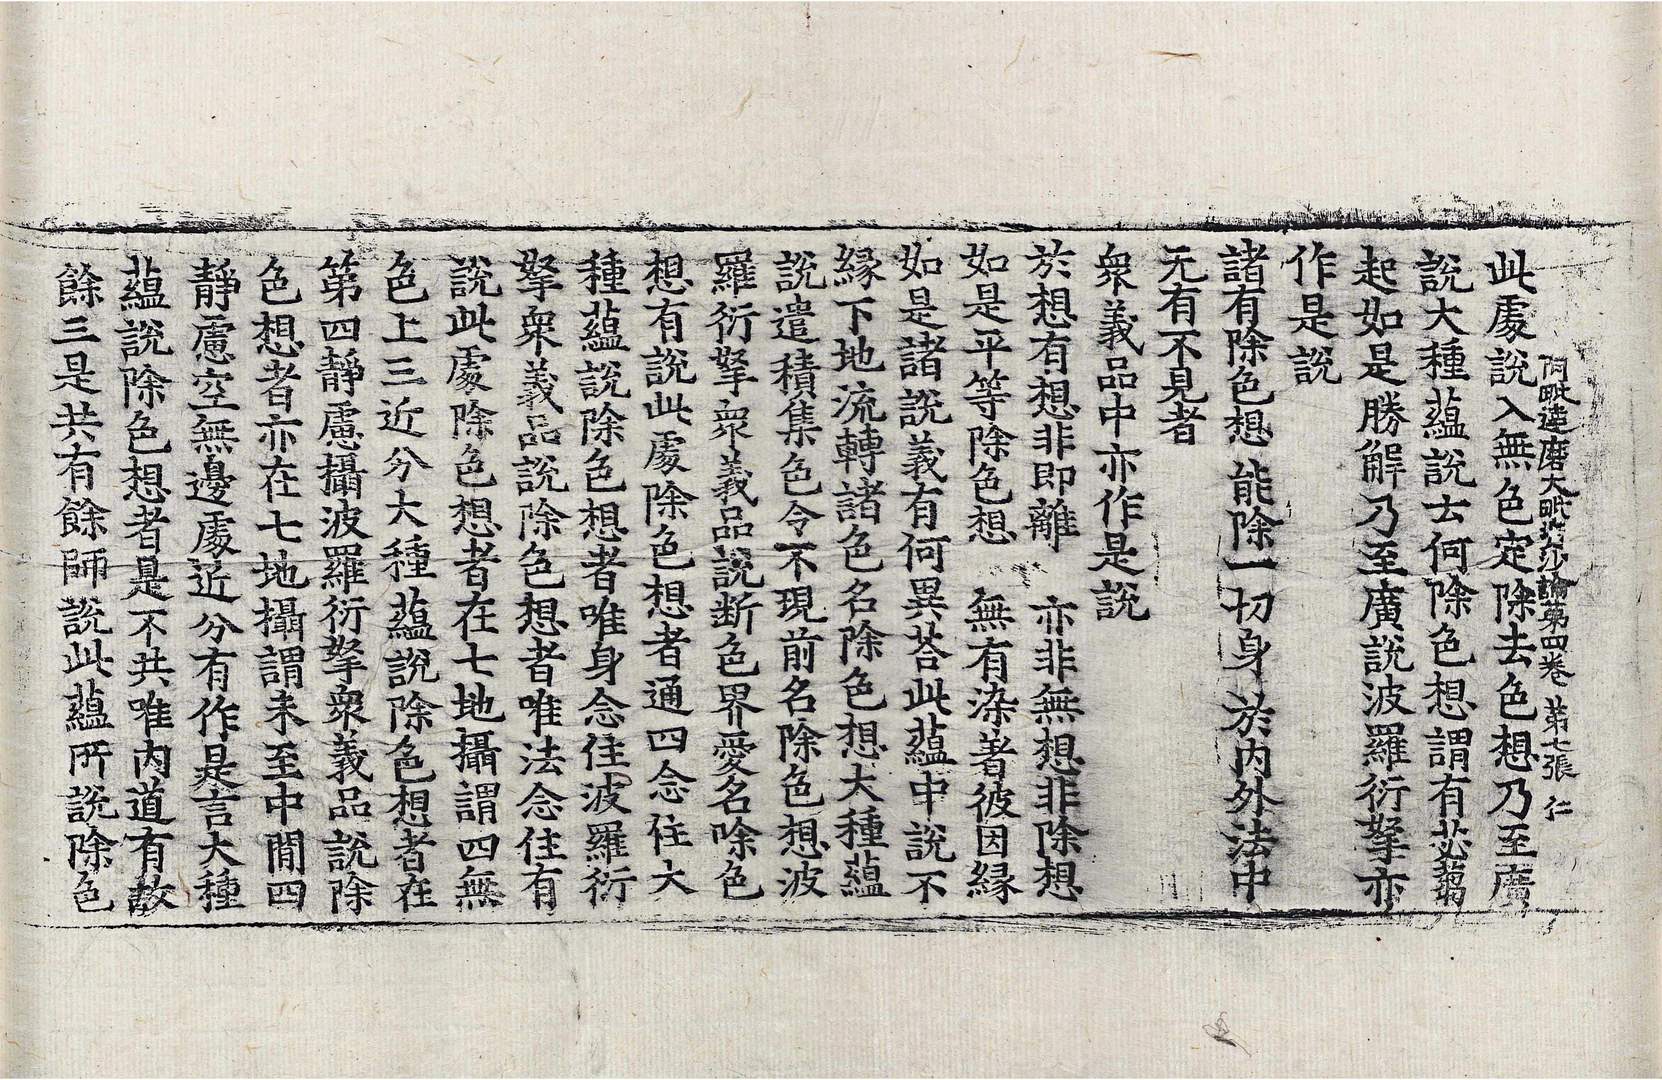 阿毗達磨大毗婆沙論第四卷 第七張 仁
此處說入無色定除去色想乃至廣
說大種蘊說云何除色想謂有苾蒭
起如是勝解乃至廣說波羅衍拏亦
作是說
諸有除色想 能除一切身 於內外法中
无有不見者
衆義品中亦作是說
於想有想非即離 亦非無想非除想
如是平等除色想 無有染著彼因緣
如是諸說義有何異荅此蘊中說不
緣下地流轉諸色名除色想大種蘊
說遣積集色令不現前名除色想波
羅衍拏衆義品說斷色界愛名除色
想有說此處除色想者通四念住大
種蘊說除色想者唯身念住波羅衍
拏衆義品說除色想者唯法念住有
說此處除色想者在七地攝謂四無
色上三近分大種蘊說除色想者在
第四靜慮攝波羅衍拏衆義品說除
色想者亦在七地攝謂未至中閒四
靜慮空無邊處近分有作是言大種
蘊說除色想者是不共唯內道有故
餘三是共有餘師說此蘊所說除色